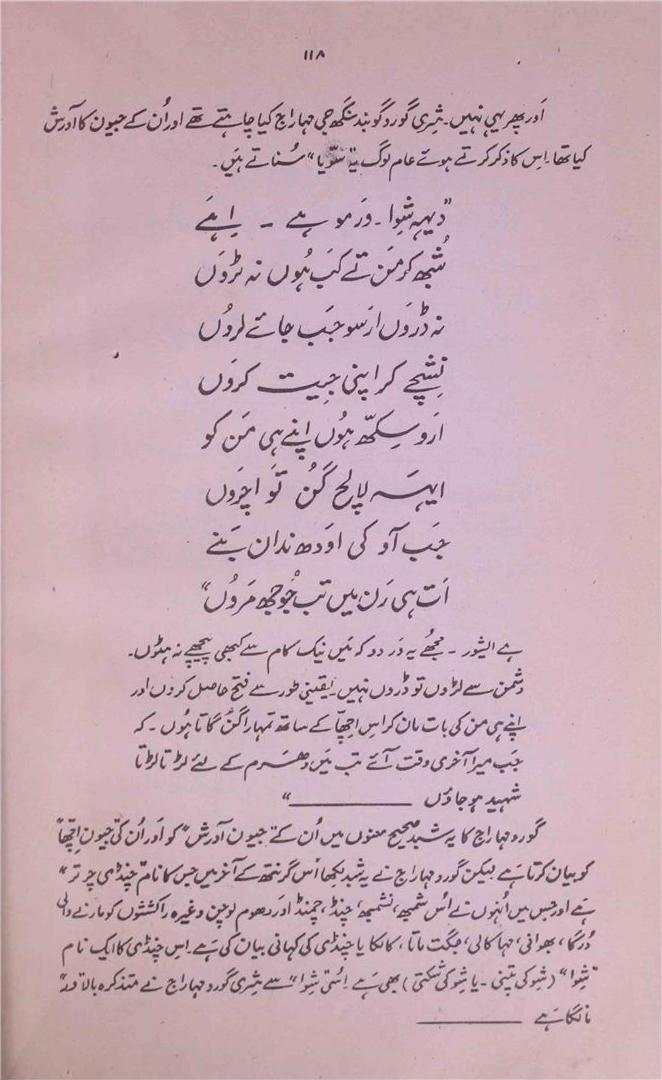 ۱۱۸
اور پھر یہی نہیں۔ شری گورو گوبند سنگھ جی مہاراج کیا چاہتے تھے اور اُن کے جیون کا آدرش
کیا تھا۔ اس کا ذکر کرتے ہوئے عام لوگ یہ "سویّا" سُناتے ہیں۔
"دیہہ شِوا۔ وَر موہے ۔ اِہَے
شُبھ کرمَن تے کَب ہُوں نہ ٹروں
نہ ڈروں ارسو جَب جائے لروں
نِشچے کر اپنی جِیت کروں
ارو سِکھّ ہُوں اپنے ہی مَن کو
ایہہ لالچ گُن تَو اچروں
جَب آو کی اودھ ندان بَنے
اَت ہی رَن میں تب جُوجھ مَروں"
ہے ایشور ۔ مجھے یہ وَر دو کہ مَیں نیک کام سے کبھی پیچھے نہ ہٹوں۔
دشمن سے لڑوں تو ڈروں نہیں۔ یقینی طور سے فتح حاصل کروں اور
اپنے ہی من کی بات مان کر اس اِچھّا کے ساتھ تمہارا گُن گاتا ہُوں۔ کہ
جَب میرا آخری وقت آئے تب مَیں دھرم کے لئے لڑتا لڑتا
شہید ہو جاؤں ــــــــــ"
گورو مہاراج کا یہ شبد صحیح معنوں میں اُن کے "جیون آدرش" کو اور اُن کی "جیون اِچھّا"
کو بیان کرتا ہے لیکن گورو مہاراج نے یہ شبد لکھا اُس گرنتھ کے آخر میں جس کا نام "چنڈی چرتر"
ہے اور جس میں اُنہوں نے اُس شمبھ، نشمبھ، چنڈ، چمنڈ اور دھوم لوچن وغیرہ راکشسوں کو مارنے والی
دُرگا، بھوانی، مہا کالی، جگت ماتا، کالکا یا چنڈی کی کہانی بیان کی ہے۔ اِس چنڈی کا ایک نام
"شِوا" (شِو کی پتنی ۔ یا شِو کی شکتی) بھی ہے۔ اِسی "شِوا" سے شری گورو مہاراج نے متذکرہ بالا "وَر"
مانگا ہے ــــــــــ